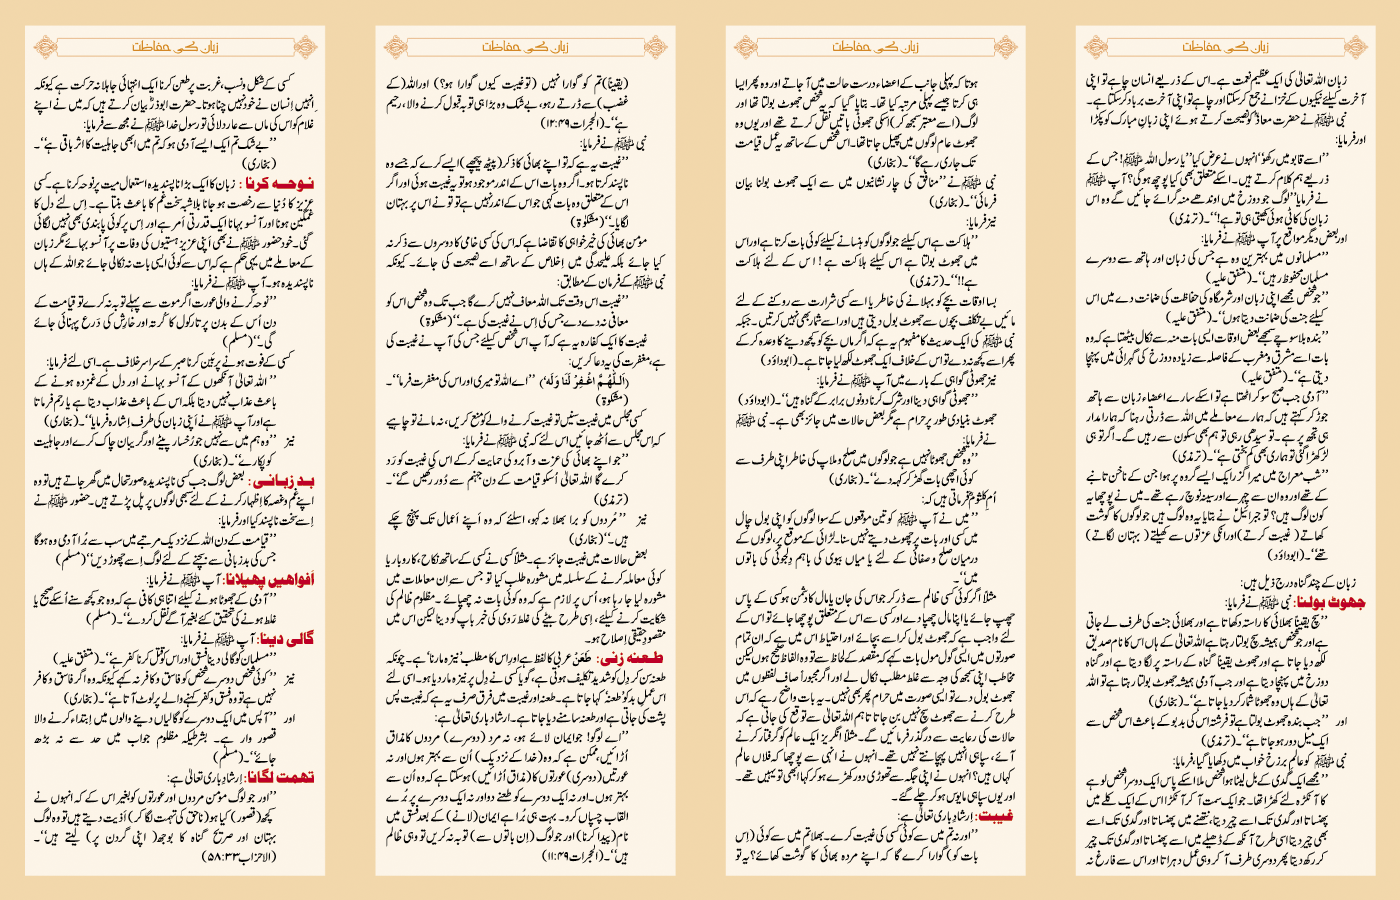 زبان کی حفاظت
زبان اللہ تعالیٰ کی ایک عظیم نعمت ہے۔اس کے ذریعے انسان چاہے تو اپنی
آخرت کیلئے نیکیوں کے خزانے جمع کرسکتا اور چاہے تو اپنی آخرت برباد کرسکتا ہے۔
نبی ﷺ نے حضرت معاذؓ کو نصیحت کرتے ہوئے اپنی زبانِ مبارک کو پکڑا
اور فرمایا:
’’اسے قابو میں رکھو‘‘ انہوں نے عرض کیا’’ یا رسول اللہ ﷺ! جس کے
ذریعے ہم کلام کرتے ہیں۔ اسکے متعلق بھی کیا پوچھ ہوگی؟ آپ ﷺ
نے فرمایا’’ لوگ جو دوزخ میں اوندھے منہ گرائے جائیں گے وہ اس
زبان کی کائی ہوئی کھیتی ہی تو ہے!‘‘۔(ترمذی)
اور بعض دیگر مواقع پر آپ ﷺ نے فرمایا:
’’مسلمانوں میں بہترین وہ ہے جس کی زبان اور ہاتھ سے دوسرے
مسلمان محفوظ رہیں‘‘۔ (متفق علیہ)
’’جو شخص مجھے اپنی زبان اور شرمگاہ کی حفاظت کی ضمانت دے میں اس
کیلئے جنت کی ضمانت دیتا ہوں‘‘۔ (متفق علیہ)
’’بندہ بلا سوچے سمجھے بعض اوقات ایسی بات منہ سے نکال بیٹھتا ہے کہ وہ
بات اسے مشرق و مغرب کے فاصلہ سے زیادہ دوزخ کی گہرائی میں پہنچا
دیتی ہے‘‘۔(متفق علیہ)
’’آدمی جب صبح سو کر اٹھتا ہے تو اسکے سارے اعضاء زبان سے ہاتھ
جوڑ کر کہتے ہیں کہ ہمارے معاملے میں اللہ سے ڈرتی رہنا کہ ہمارا مدار
ہی تجھ پر ہے۔ تو سیدھی رہی تو ہم بھی سکون سے رہیں گے۔ اگر تو ہی
لڑکھڑا گئی تو ہماری بھی کم بختی ہے‘‘۔(ترمذی)
’’شب معراج میں میرا گزر ایک ایسے گروہ پر ہوا جن کے ناخن تانبے
کے تھے اور وہ ان سے چہرے اور سینہ نوچ رہے تھے۔میں نے پوچھا یہ
کون لوگ ہیں؟ تو جبرائیلؑ نے بتایا یہ وہ لوگ ہیں جو لوگوں کا گوشت
کھاتے (غیبت کرتے) اور انکی عزتوں سے کھیلتے ( بہتان لگاتے)
تھے‘‘۔(ابوداؤد)
زبان کے چند گناہ درج ذیل ہیں:
جھوٹ بولنا: نبی ﷺ نے فرمایا:
’’سچ یقیناً بھلائی کا راستہ دکھاتا ہے اور بھلائی جنت کی طرف لے جاتی
ہے اور جو شخص ہمیشہ سچ بولتا رہتا ہے اللہ تعالیٰ کے ہاں اس کا نام صدیق
لکھ دیا جاتا ہے اور جھوٹ یقیناً گناہ کے راستہ پر لگا دیتا ہے اور گناہ
دوزخ میں پہنچا دیتا ہے اور جب آدمی ہمیشہ جھوٹ بولتا رہتا ہے تو اللہ
تعالیٰ کے ہاں وہ جھوٹا شمار کر دیا جاتا ہے‘‘۔(بخاری)
اور ’’جب بندہ جھوٹ بولتا ہے تو فرشتہ اس کی بدبو کے باعث اس شخص سے
ایک میل دور ہو جاتا ہے‘‘۔(ترمذی)
نبی ﷺ کو عالمِ برزخ خواب میں دکھایا گیا، فرمایا:
’’مجھے ایک گدی کے بل لیٹا ہوا شخص ملا اسکے پاس ایک دوسرا شخص لوہے
کا آنکڑہ لئے کھڑا تھا۔ جو ایک سمت آ کر آنکڑا اس کے ایک کلے میں
پھنساتا اور گدی تک اسے چیر دیتا، نتھنے میں پھنساتا اور گدی تک اسے
بھی چیر دیتا اسی طرح آنکھ کے ڈھیلے میں اسے پھنساتا اور گدی تک چیر
کر رکھ دیتا پھر دوسری طرف آ کر وہی عمل دہراتا اور اس سے فارغ نہ
زبان کی حفاظت
ہوتا کہ پہلی جانب کے اعضاء درست حالت میں آ جاتے اور وہ پھر ایسا
ہی کرتا جیسے پہلی مرتبہ کیا تھا۔ بتایا گیا کہ یہ شخص جھوٹ بولتا تھا اور
لوگ (اسے معتبر سمجھ کر) اسکی جھوٹی باتیں نقل کرتے تھے اور یوں وہ
جھوٹ عام لوگوں میں پھیل جاتا تھا۔ اس شخص کے ساتھ یہ عمل قیامت
تک جاری رہے گا‘‘۔(بخاری)
نبی ﷺ نے ’’منافق کی چار نشانیوں میں سے ایک جھوٹ بولنا بیان
فرمائی‘‘۔(بخاری)
نیز فرمایا:
’’ہلاکت ہے اس کیلئے جو لوگوں کو ہنسانے کیلئے کوئی بات کرتا ہے اور اس
میں جھوٹ بولتا ہے اس کیلئے ہلاکت ہے ! اس کے لئے ہلاکت
ہے!!‘‘۔(ترمذی)
بسا اوقات بچے کو بہلانے کی خاطر یا اسے کسی شرارت سے روکنے کے لئے
مائیں بے تکلف بچوں سے جھوٹ بول دیتی ہیں اور اسے شمار بھی نہیں کرتیں۔ جبکہ
نبی ﷺ کی ایک حدیث کا مفہوم یہ ہے کہ اگر ماں بچے کو کچھ دینے کا وعدہ کر کے
پھر اسے کچھ نہ دے تو اس کے خلاف ایک جھوٹ لکھ لیا جاتا ہے۔(ابوداؤد)
نیز جھوٹی گواہی کے بارے میں آپ ﷺ نے فرمایا:
’’جھوٹی گواہی دینا اور شرک کرنا دونوں برابر کے گناہ ہیں‘‘۔(ابوداؤد)
جھوٹ بنیادی طور پر حرام ہے مگر بعض حالات میں جائز بھی ہے۔ نبی ﷺ
نے فرمایا:
’’وہ شخص جھوٹا نہیں ہے جو لوگوں میں صلح و ملاپ کی خاطر اپنی طرف سے
کوئی اچھی بات گھڑ کر کہہ دے‘‘۔(بخاری)
اُم کلثومؓ فرماتی ہیں کہ:
’’میں نے آپ ﷺ کو تین موقعوں کے سوا لوگوں کو اپنی بول چال
میں کسی اور بات پر جھوٹ دیتے نہیں سنا۔لڑائی کے موقع پر، لوگوں کے
درمیان صلح و صفائی کے لئے یا میاں بیوی کی باہم دلجوئی کی باتوں
میں‘‘۔
مثلاً اگر کوئی کسی ظالم سے ڈر کر جو اس کی جان یا مال کا دشمن ہو کسی کے پاس
چھپ جائے یا اپنا مال چھپا دے اور کسی سے اس کے متعلق پوچھا جائے تو اس کے
لئے واجب ہے کہ جھوٹ بول کر اسے بچائے اور احتیاط اس میں ہے کہ ان تمام
صورتوں میں ایسی گول مول بات کہے کہ مقصد کے لحاظ سے تو وہ الفاظ صحیح ہوں لیکن
مخاطب اپنی سمجھ کی وجہ سے غلط مطلب نکال لے اور اگر مجبوراً صاف لفظوں میں
جھوٹ بول دے تو ایسی صورت میں حرام پھر بھی نہیں۔ یہ بات واضح رہے کہ اس
طرح کرنے سے جھوٹ سچ نہیں بن جاتا تاہم اللہ تعالیٰ سے توقع کی جاتی ہے کہ
حالات کی رعایت سے درگذر فرمائیں گے۔ مثلاً انگریز ایک عالم کو گرفتار کرنے
آئے، سپاہی انہیں پہچانتے نہیں تھے۔ انہوں نے انہی سے پوچھا کہ فلاں عالم
کہاں ہیں؟ انہوں نے اپنی جگہ سے تھوڑی دور کھڑے ہو کر کہا ابھی تو یہیں تھے۔
اور یوں سپاہی مایوس ہو کر چلے گئے۔
غیبت: اِرشادِ باری تعالیٰ ہے:
’’اور نہ تم میں سے کوئی کسی کی غیبت کرے۔ بھلا تم میں سے کوئی (اِس
بات کو) گوارا کرے گا کہ اپنے مردہ بھائی کا گوشت کھائے؟ یہ تو
زبان کی حفاظت
(یقیناً) تم کو گوارا نہیں (تو غیبت کیوں گوارا ہو؟) اور اللہ (کے
غضب) سے ڈرتے رہو، بے شک وہ بڑا ہی توبہ قبول کرنے والا، رحیم
ہے‘‘۔(الحجرات ۴۹:۱۲)
نبی ﷺ نے فرمایا:
’’غیبت یہ ہے کہ تو اپنے بھائی کا ذکر (پیٹھ پیچھے) ایسے کرے کہ جسے وہ
ناپسند کرتا ہو۔ اگر وہ بات اس کے اندر موجود ہو تو یہ غیبت ہوئی اور اگر
اس کے متعلق وہ بات کہی جو اس کے اندر نہیں ہے تو تو نے اس پر بہتان
لگایا۔‘‘(مشکوٰۃ)
مؤمن بھائی کی خیر خواہی کا تقاضا ہے کہ اس کی کسی خامی کا دوسروں سے ذکر نہ
کیا جائے بلکہ علیٰحدگی میں اِخلاص کے ساتھ اسے نصیحت کی جائے۔ کیونکہ
نبی ﷺ کے فرمان کے مطابق:
’’غیبت اس وقت تک اللہ معاف نہیں کرے گا جب تک وہ شخص اس کو
معافی نہ دے دے جس کی اِس نے غیبت کی ہے۔‘‘(مشکوٰۃ)
غیبت کا ایک کفارہ یہ ہے کہ آپ اس شخص کیلئے جس کی آپ نے غیبت کی
ہے، مغفرت کی یہ دعا کریں:
(اَللّٰهُمَّ اغْفِرْ لَنَا وَلَهٗ) ’’اے اللہ تو میری اور اس کی مغفرت فرما‘‘۔
(مشکوٰۃ)
کسی مجلس میں غیبت سنیں تو غیبت کرنے والے کو منع کریں، نہ مانے تو چاہیے
کہ اِس مجلس سے اُٹھ جائیں اس لئے کہ نبی ﷺ نے فرمایا:
’’جو اپنے بھائی کی عزت و آبرو کی حمایت کر کے اس کی غیبت کو رَد
کرے گا اللہ تعالیٰ اُسکو قیامت کے دن جہنم سے دُور رکھیں گے‘‘۔
(ترمذی)
نیز ’’مُردوں کو برا بھلا نہ کہو، اسلئے کہ وہ اپنے اَعمال تک پہنچ چکے
ہیں۔‘‘(بخاری)
بعض حالات میں غیبت جائز ہے۔ مثلاً کسی نے کسی کے ساتھ نکاح، کاروبار یا
کوئی معاملہ کرنے کے سلسلہ میں مشورہ طلب کیا تو جس سے اِن معاملات میں
مشورہ لیا جا رہا ہو، اُس پر لازم ہے کہ وہ کوئی بات نہ چھپائے۔ مظلوم ظالم کی
شکایت کرنے کیلئے، اسی طرح بیٹے کی غلط رَوی کی خبر باپ کو دینا لیکن اس میں
مقصود حقیقی اِصلاح ہو۔
طعنہ زنی: طَعَنَ عربی کا لفظ ہے اور اِس کا مطلب ’نیزہ مارنا‘ ہے۔ چونکہ
طعنہ سن کر دِل کو شدید تکلیف ہوتی ہے، گویا کسی نے دل پر نیزہ مار دیا ہو۔ اسی لئے
اس عملِ بد کو ’طعنہ‘ کہا جاتا ہے۔ طعنہ اور غیبت میں فرق صرف یہ ہے کہ غیبت پس
پشت کی جاتی ہے اور طعنہ سامنے دیا جاتا ہے۔ ارشادِ باری تعالیٰ ہے:
’’اے لوگو! جو ایمان لائے ہو، نہ مرد (دوسرے) مردوں کا مذاق
اُڑائیں، ممکن ہے کہ وہ (خدا کے نزدیک) اُن سے بہتر ہوں اور نہ
عورتیں (دوسری) عورتوں کا (مذاق اُڑائیں) ہو سکتا ہے کہ وہ اُن سے
بہتر ہوں۔ اور نہ ایک دوسرے کو طعنے دو اور نہ ایک دوسرے پر بُرے
القاب چسپاں کرو۔ بہت ہی بُرا ہے ایمان (لانے) کے بعد فسق میں
نام (پیدا کرنا) اور جو لوگ (اِن باتوں سے) توبہ نہ کریں تو وہی ظالم
ہیں‘‘۔(الحجرات ۴۹:۱۱)
زبان کی حفاظت
کسی کے شکل و نسب، غربت پر طعن کرنا ایک انتہائی جاہلانہ حرکت ہے کیونکہ
اِنہیں اِنسان نے خود نہیں چنا ہوتا۔ حضرت ابوذرؓ بیان کرتے ہیں کہ میں نے اپنے
غلام کو اس کی ماں سے عار دلائی تو رسول خدا ﷺ نے مجھ سے فرمایا:
’’بے شک تم ایک ایسے آدمی ہو کہ تم میں ابھی جاہلیت کا اثر باقی ہے‘‘۔
(بخاری)
نوحہ کرنا: زبان کا ایک بڑا ناپسندیدہ استعمال میت پر نوحہ کرنا ہے۔ کسی
عزیز کا دُنیا سے رخصت ہو جانا بلاشبہ سخت غم کا باعث بنتا ہے۔ اِس لئے دل کا
غمگین ہونا اور آنسو بہانا ایک قدرتی اَمر ہے اور اِس پر کوئی پابندی بھی نہیں لگائی
گئی۔ خود حضور ﷺ نے بھی اپنی عزیز ہستیوں کی وفات پر آنسو بہائے مگر زبان
کے معاملے میں یہی حکم ہے کہ اِس سے کوئی ایسی بات نہ نکالی جائے جو اللہ کے ہاں
ناپسندیدہ ہو۔ آپ ﷺ نے فرمایا:
’’نوحہ کرنے والی عورت اگر موت سے پہلے توبہ نہ کرے تو قیامت کے
دن اُس کے بدن پر تارکول کا کُرتہ اور خارِش کی زَرع پہنائی جائے
گی‘‘۔(مسلم)
کسی کے فوت ہونے پر بَین کرنا صبر کے سراسر خلاف ہے۔ اسی لئے فرمایا:
’’اللہ تعالیٰ آنکھوں کے آنسو بہانے اور دل کے غمزدہ ہونے کے
باعث عذاب نہیں دیتا بلکہ اس کے باعث عذاب دیتا ہے یا رحم فرماتا
ہے اور آپ ﷺ نے اَپنی زبان کی طرف اِشارہ فرمایا‘‘۔(بخاری)
نیز ’’وہ ہم میں سے نہیں جو رُخسار پیٹے اور گریبان چاک کرے اور جاہلیت
کو پکارے‘‘۔(بخاری)
بد زبانی: بعض لوگ جب کسی ناپسندیدہ صورتحال میں گھر جاتے ہیں تو وہ
اپنے غم و غصہ کا اِظہار کرنے کے لئے سبھی لوگوں پر پل پڑتے ہیں۔ حضور ﷺ نے
اِسے سخت ناپسند کیا اور فرمایا:
’’قیامت کے دن اللہ کے نزدیک مرتبے میں سب سے بُرا آدمی وہ ہوگا
جس کی بدزبانی سے بچنے کے لئے لوگ اِسے چھوڑ دیں‘‘(مسلم)
اَفواہیں پھیلانا: آپ ﷺ نے فرمایا:
’’آدمی کے جھوٹا ہونے کیلئے اتنا ہی کافی ہے کہ وہ جو کچھ سنے اُسکے صحیح یا
غلط ہونے کی تحقیق کئے بغیر آگے نقل کر دے‘‘۔(مسلم)
گالی دینا: آپ ﷺ نے فرمایا:
’’مسلمان کو گالی دینا فسق اور اس کو قتل کرنا کفر ہے‘‘۔(متفق علیہ)
نیز ’’کوئی شخص دوسرے شخص کو فاسق و کافر نہ کہے کیونکہ وہ اگر فاسق و کافر
نہیں ہے تو وہ فسق و کفر کہنے والے پر لوٹ آتا ہے‘‘۔(بخاری)
اور ’’آپس میں ایک دوسرے کو گالیاں دینے والوں میں اِبتداء کرنے والا
قصور وار ہے۔ بشرطیکہ مظلوم جواب میں حد سے نہ بڑھ
جائے‘‘۔(مسلم)
تہمت لگانا: اِرشادِ باری تعالیٰ ہے:
’’اور جو لوگ مؤمن مردوں اور عورتوں کو بغیر اس کے کہ انہوں نے
کچھ (قصور) کیا ہو (ناحق کی تہمت لگا کر) اَذیت دیتے ہیں تو وہ لوگ
بہتان اور صریح گناہ کا بوجھ (اپنی گردن پر) لیتے ہیں‘‘۔
(الاحزاب ۳۳:۵۸)